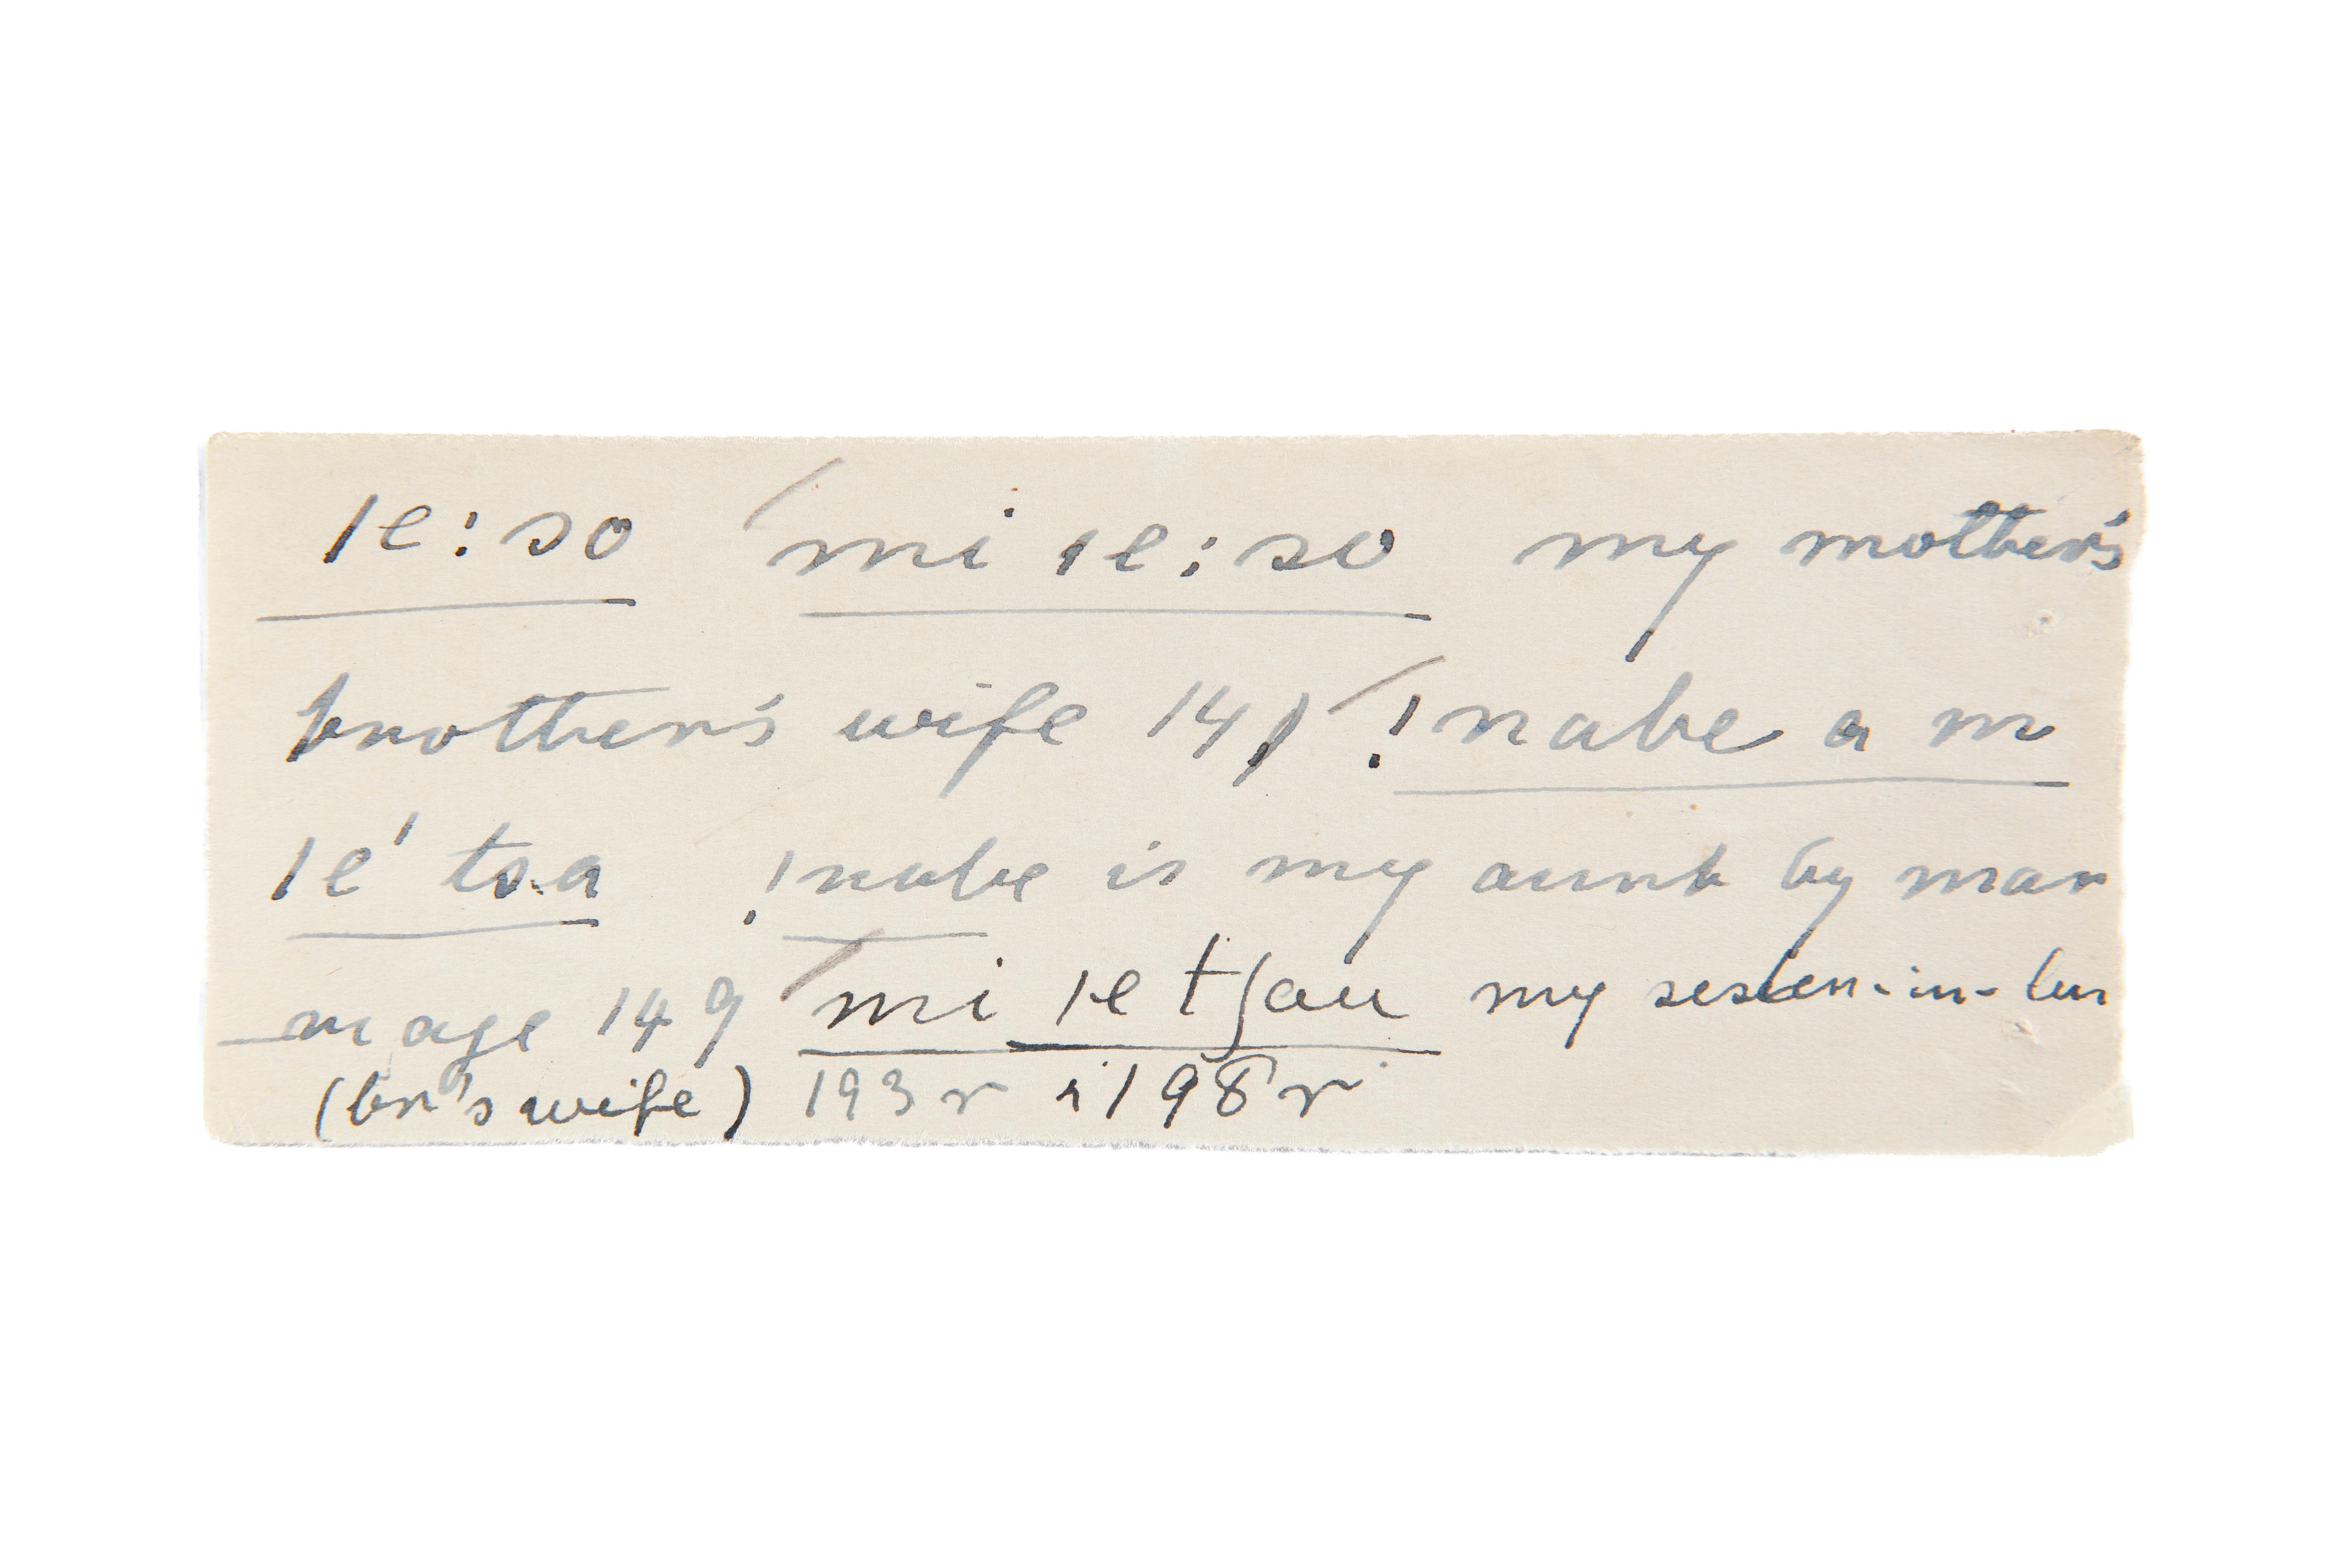 ǀe:so mi ǀe:so my mother's
brother's wife 14) !nabe a m
ǀe' tsa !nabe is my aunt by mar
riage 149 mi ǀe tʃau my sister-in-law
(br's wife) 193r i 198r